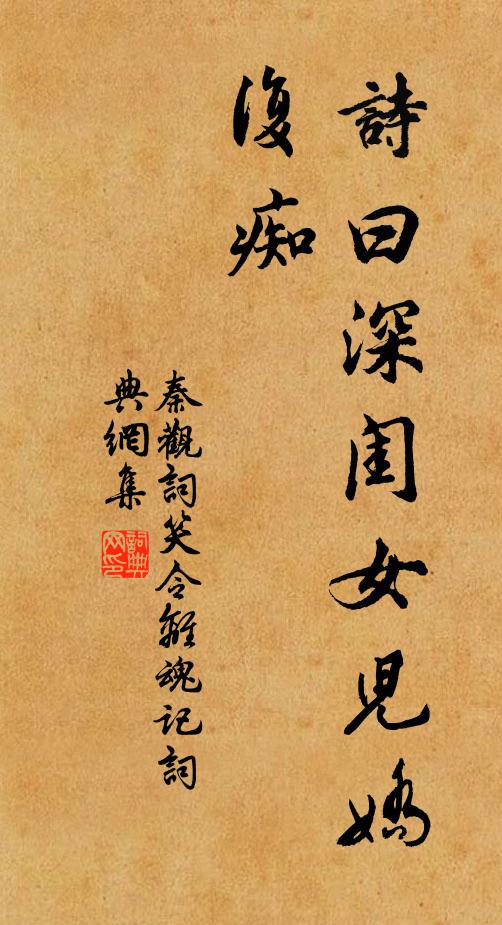 詩曰深閨女兒嬌
復痴
秦觀詞笑令離魂記詞
典網集
詞典
网印